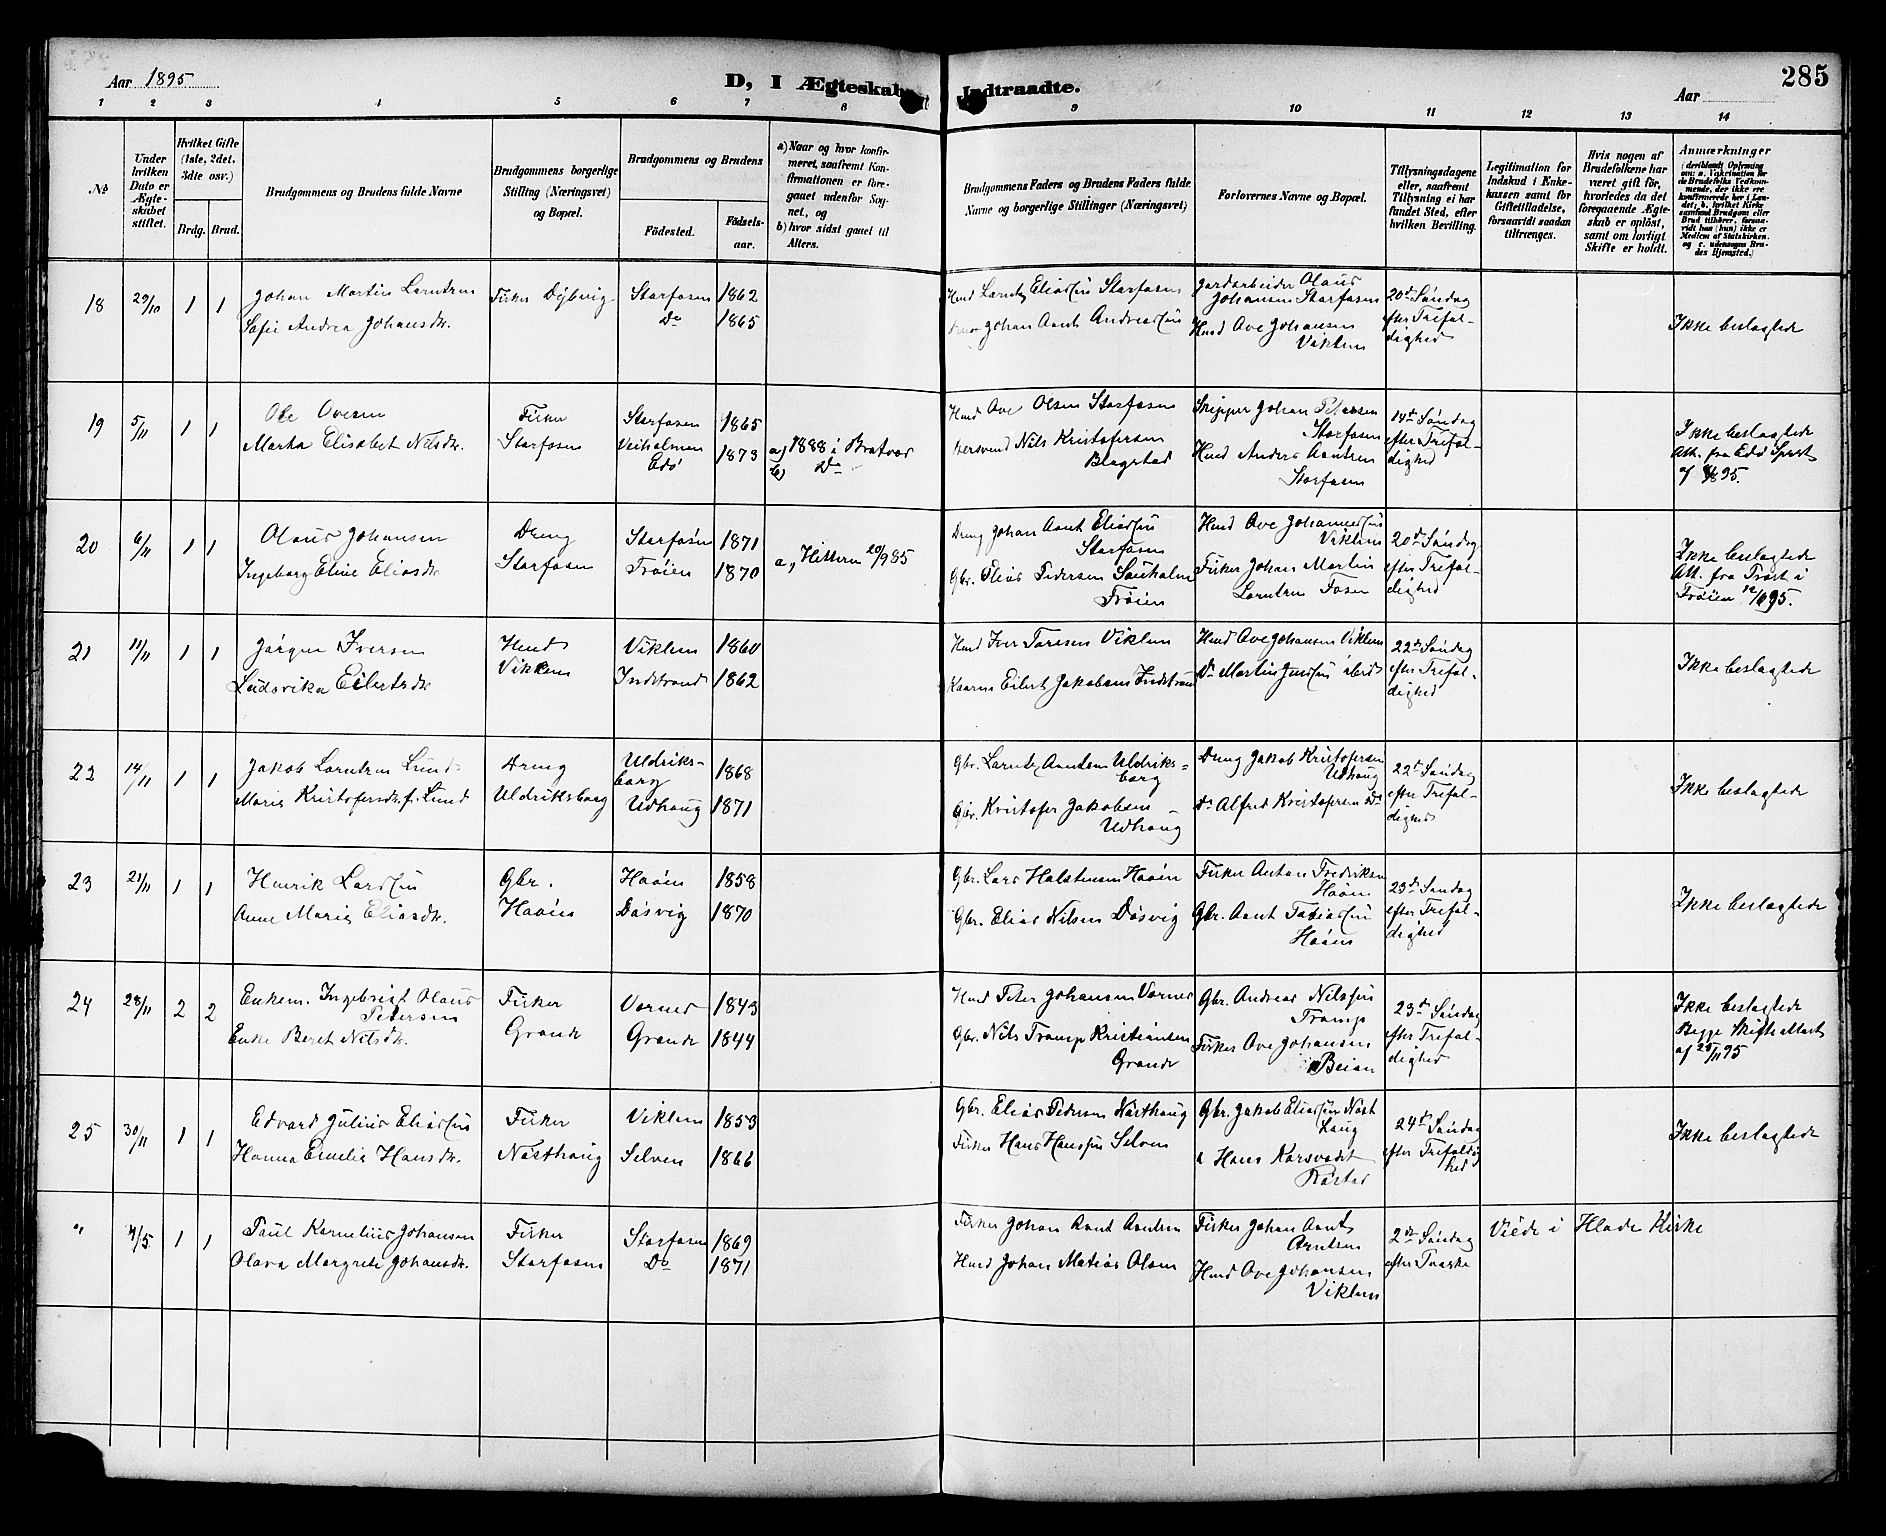 Aar 1895
D, I Ægteskab Indtraadte.
Aar
285
1 2 3 4 5 6 7 8 9 10 11 12 13 14
No
Under hvilken Dato er Ægteskabet stiftet.
Hvilket Gifte (1ste, 2det, 3die osv.)
Brdg. Brud.
Brudgommens og Brudens fulde Navne
Brudgommens borgerlige Stilling (Næringsvei) og Bopæl.
Brudgommens og Brudens
Födested.
Födsels-aar.
a) Naar og hvor konfirmeret, saafremt Konfirmationen er foregaaet udenfor Sognet, og
b) hvor sidst gaaet til Alters.
Brudgommens Faders og Brudens Faders fulde Navne og borgerlige Stillinger (Næringsvei)
Forlovernes Navne og Bopæl.
Tillysningsdagene eller, saafremt Tillysning ei har fundet Sted, efter hvilken Bevilling.
Legitimation for Indskud i Enkekassen samt for Giftetilladelse, forsaavidt saadan tiltrænges.
Hvis nogen af Brudefolkene har været gift för, hvorledes da det foregaaende Ægteskab er oplöst, samt om lovligt Skifte er holdt.
Anmærkninger
18 29/10 1 1
Johan Martin Larntzen
Sofie Andrea Johansdtr.
Fisker Dybvig
Storfosen 1862
Do 1865
Elias(sen) Storfosen
Johan Arnt Andreas(sen)
Gaardarbeider Olaus
Johansen Storfosen
Huusmd Ove Johansen
Viklem
20de Søndag
efter Trefol-
dighed
Ikke beslægtede
19 5/11 1 1
Ole Ovesen
Marta Elisabet Nilsdtr.
Fisker
Storfosen
Storfosen 1865
Veiholmen
Edø 1873
a) 1888 i Bratvær
b) Do
Ove Olsen Storfosen
Nils Kristofersen
Blagstad
Skipper Johan Petersen
Storfosen
Anders Arntzen
Storfosen
14de Søndag
efter Trefol-
dighed
Ikke beslægtede
Att. fra Edø Sprst
20 6/11 1 1
Olaus Johansen
Ingeborg Eline Eliasdtr
Dreng
Storfosen
Storfosen 1871
Frøien 1870
a, Hitteren 20/9 85
Dreng Johan Arnt Elias(sen)
Storfosen
Gbr. Elias Pedersen Sauholm
Frøien
Ove Johannes(sen)
Viklem
Fisker Johan Martin
Larntzen Fosen
20de Søndag
efter Trefol-
dighed
Ikke beslægtede
Att. fra Prost i
Frøien
21 11/11 1 1
Jørgen Iversen
Ludovika Eilertsdtr
Viklem
Viklem 1860
Indstrand 1862
Viklem
Eilert Jakobsen Indstrand
Ove Johansen Viklem
Do Martin Jens(sen) ibid
22de Søndag
efter Trefol-
dighed
Ikke beslægtede
22 14/11 1 1
Jakob Larntzen Lund
Marie Kristofersdtr. f. Lund
Dreng
Uldriksborg
Uldriks-
borg 1868
Udhaug 1871
Gbr. Larntz Arntzen Uldriks-
borg
Gbr. Kristofer Jakobsen
Udhaug
Dreng Jakob Kristofersen
Udhaug
Do Alfred Kristofersen Do
22de Søndag
efter Trefol-
dighed
Ikke beslægtede
23 21/11 1 1
Henrik Lars(sen)
Anne Marie Eliasdtr.
Gbr.
Haøen
Haøen 1858
Døsvig 1870
Gbr. Lars Halstensen Haøen
Gbr. Elias Nilsen Døsvig
Fisker Anton Fredriksen
Haøen
Gbr. Arnt Tobias(sen)
Haøen
23de Søndag
efter Trefol-
dighed
Ikke beslægtede
24 28/11 2 2
Enkem. Ingebrigt Olaus
Petersen
Enke Beret Nilsdtr.
Fisker
Grande
Vornes 1843
Grande 1844
Peter Johansen Vornes
Gbr. Nils Tramp Kristiansen
Grande
Gbr. Andreas Nilssen
Tramp
Fisker Ove Johansen
Beian
23de Søndag
efter Trefol-
dighed
Ikke beslægtede
Begge Skifte Attest
af 28/11 95
25 30/11 1 1
Edvard Julius Elias(sen)
Hanna Emelie Hansdtr.
Fisker
Næsthaug
Viklem 1853
Selven 1866
Gbr. Elias Pedersen Næsthaug
Fisker Hans Hanssen Selven
Gbr. Jakob Elias(sen) Næst
haug
Hans Karsvedt
24de Søndag
efter Trefoldig
hed
Ikke beslægtede
" 4/5 1 1
Paul Kornelius Johansen
Olava Margrete Johansdtr.
Fisker
Storfosen
Storfosen 1869
Do 1871
Fisker Johan Arnt Arntzen
Johan Matias Olsen
Fisker Johan Arnt
Arntsen
Ove Johansen
Viklem
2den Søndag
efter Paaske
Viede i Hlade Kirke